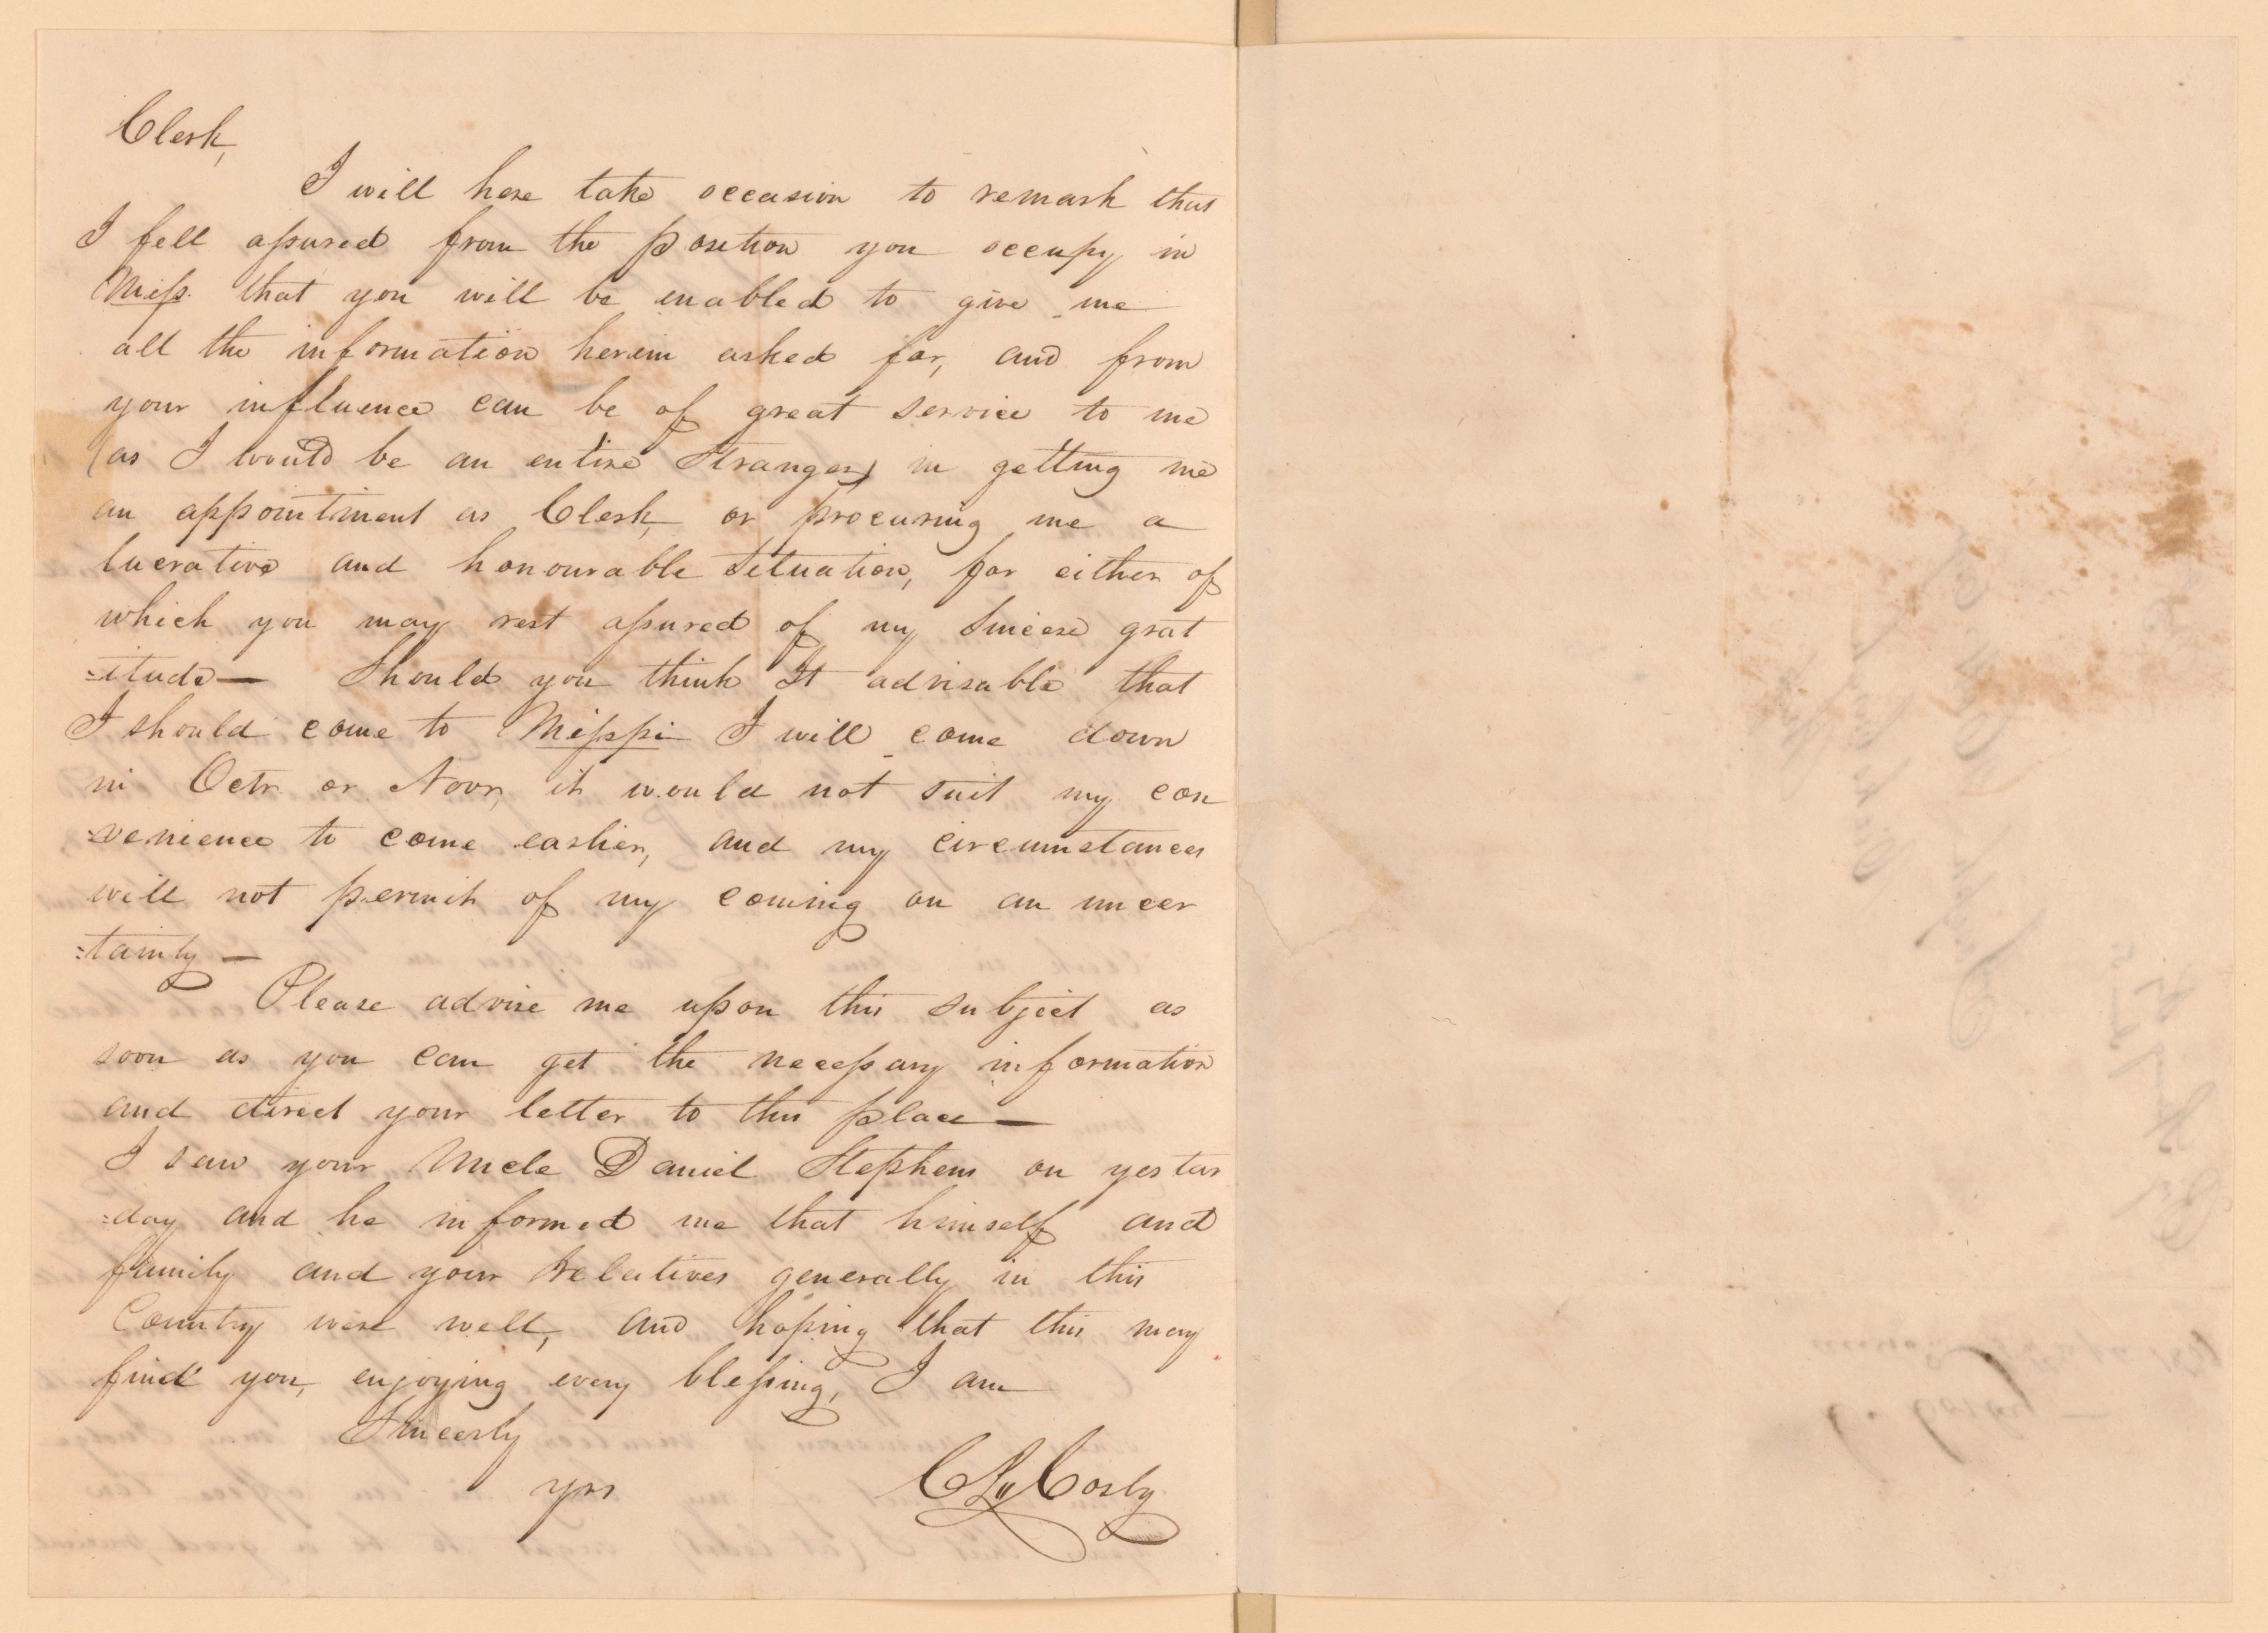 Clerk,
I will here take occasion to remark that
I fell assured from the position you occupy in
Miss. that you will be enabled to give me
all the information herein asked for, and from
your influence can be of great service to me
(as I would be an entire Stranger) in getting me
an appointment as Clerk, or procuring me a
lucrative and honourable Situation, for either of
which you may rest assured of my Sincere grat
=itude— Should you think It advisable that
I should come to Missppi I will come down
in Octr. or Novr, it would not suit my con
=venience to come earlier, and my circumstances
will not permit of my coming on an uncer
=tainty —
Please advise me upon this Subject as
soon as you can get the necessary information
and direct your letter to this place—
I saw your Uncle Daniel Stephens on yester
=day and he informed me that himself and
family and your Relatives generally in this
Country were well, and hoping that this may
find you, enjoying every blessing, I am
Sincerly
yrs
Cosby